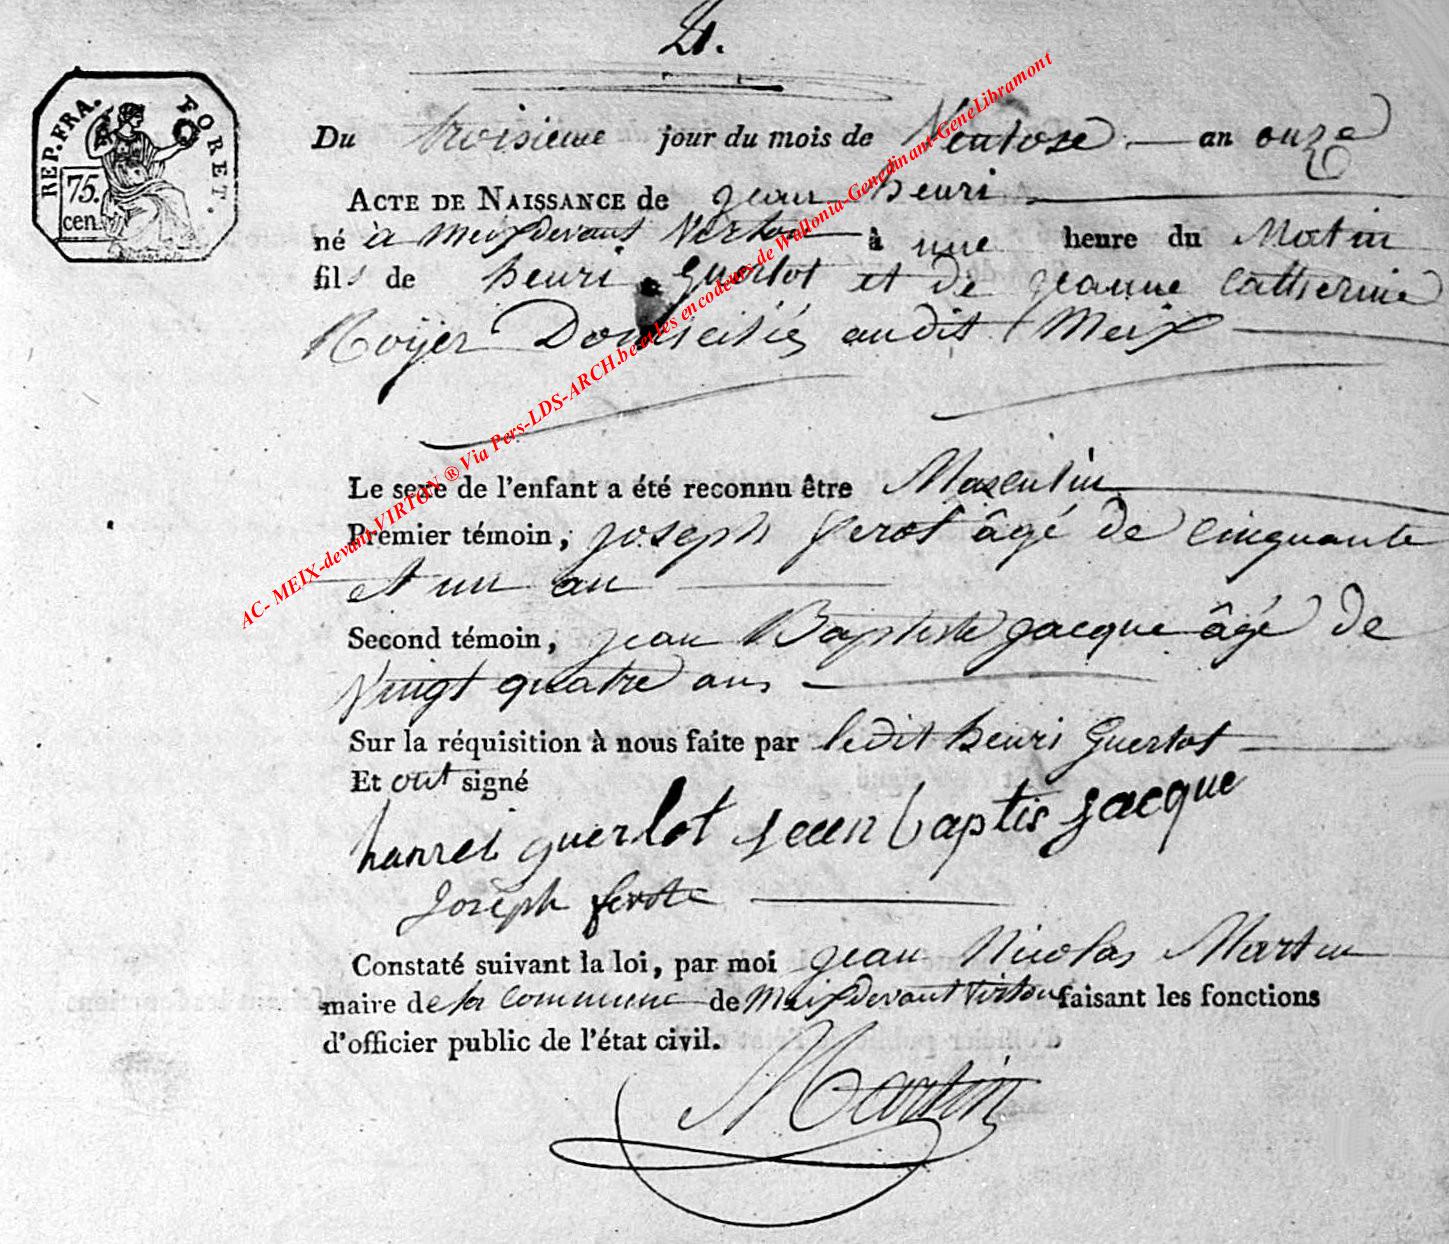 21.
REP. FRA.
FORET.
75.
cen.
Du troisieme jour du mois de Ventose an onze
ACTE DE NAISSANCE de jean henri
né a Meix devant Virton à une heure du Matin
fils de henri Guerlot et de jeanne Catherine
Royer Domiciliés audit Meix
Le sexe de l'enfant a été reconnu être Masculin
Premier témoin, joseph ferot âgé de cinquante
et un an
Second témoin, jean Baptiste jacque âgé de
Vingt quatre ans
Sur la réquisition à nous faite par ledit henri Guerlot
Et ont signé
hanrei guerlot jean baptis jacque
Joseph ferote
Constaté suivant la loi, par moi jean Nicolas Martin
maire de la commune de Meix devant Virton faisant les fonctions
d'officier public de l'état civil.
Martin
AC- MEIX-devant-VIRTON ® Via Pers-LDS-ARCH.be et les encodeurs de Wallonia-Genedinant-GeneLibramont